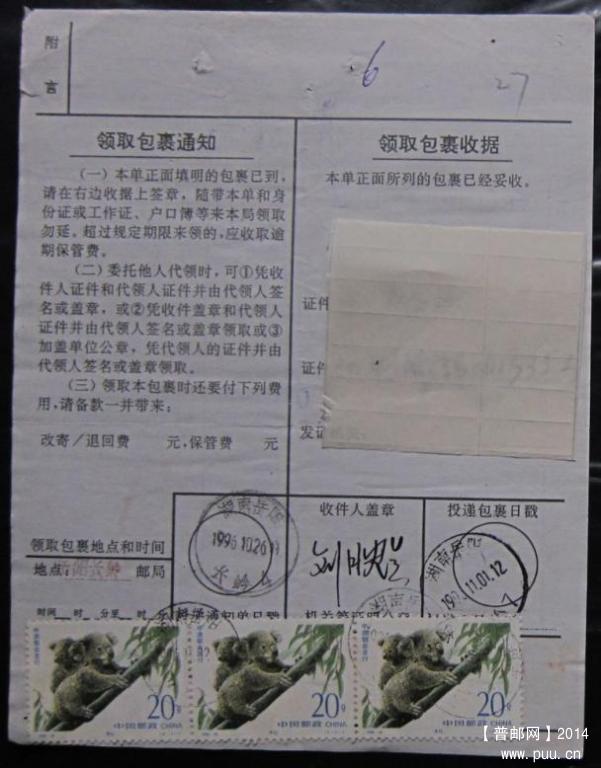 附
言
6
27
领取包裹通知
(一)本单正面填明的包裹已到,
请在右边收据上签章,随带本单和身
份证或工作证、户口簿等来本局领取
勿延。超过规定期限来领的,应收取逾
期保管费。
(二)委托他人代领时,可①凭收
件人证件和代领人证件并由代领人签
名或盖章,或②凭收件盖章和代领人
证件并由代领人签名或盖章领取或③
加盖单位公章,凭代领人的证件并由
代领人签名或盖章领取。
(三)领取本包裹时还要付下列费
用,请备款一并带来:
改寄/退回费 元,保管费 元
领取包裹收据
本单正面所列的包裹已经妥收。
证件
证件
发证
领取包裹地点和时间
地点: 邮局
时间 时 分至 时 分
收件人盖章
投递包裹日戳
湖南岳阳
1996.10.26
湖南岳阳
11.01.12
20分
中国邮政 CHINA
20分
中国邮政 CHINA
20分
中国邮政 CHINA
【普邮网】2014
www.puu.cn